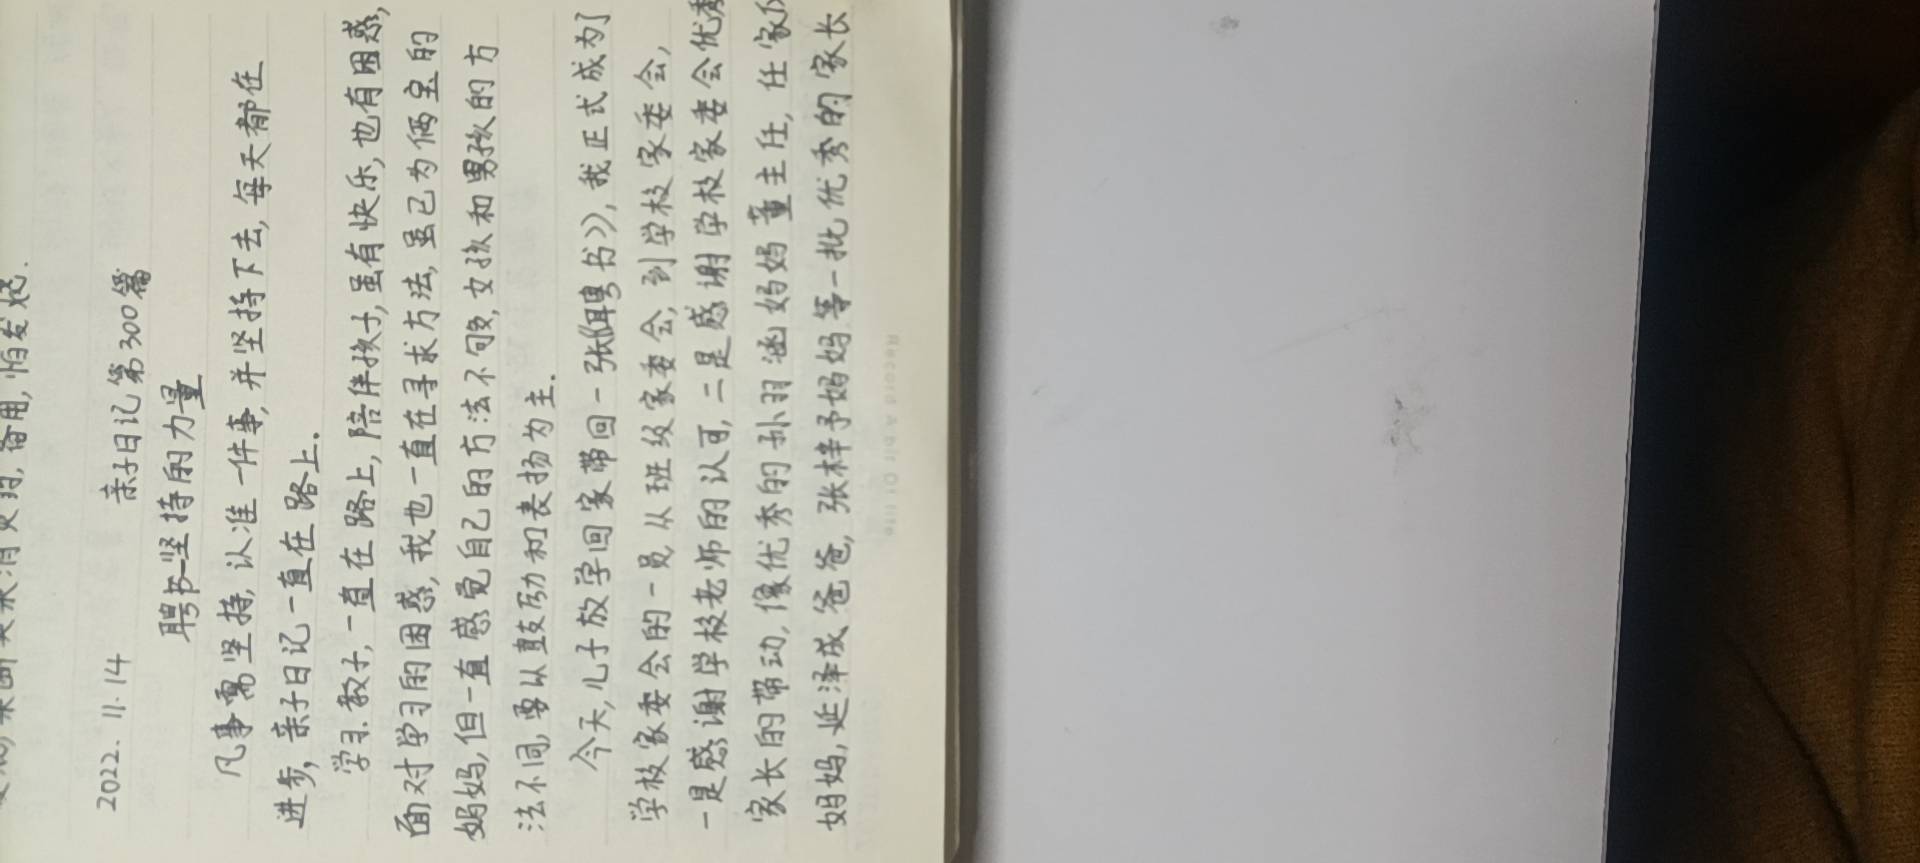 备用,怕发烧.
2022.11.14 亲子日记第300篇
聘书—坚持的力量
凡事需坚持,认准一件事,并坚持下去,每天都在
进步,亲子日记一直在路上.
学习.教子,一直在路上,陪伴孩子,虽有快乐,也有困惑,
面对学习的困惑,我也一直在寻求方法,虽已为俩宝的
妈妈,但一直感觉自己的方法不够,女孩和男孩的方
法不同,要以鼓励和表扬为主.
今天,儿子放学回家带回一张《聘书》,我正式成为了
学校家委会的一员从班级家委会,到学校家委会,
一是感谢学校老师的认可,二是感谢学校家委会优秀
家长的带动,像优秀的孙羽涵妈妈董主任,任家
妈妈,延泽成爸爸,张梓予妈妈等一批优秀的家长
Record A bit Of life